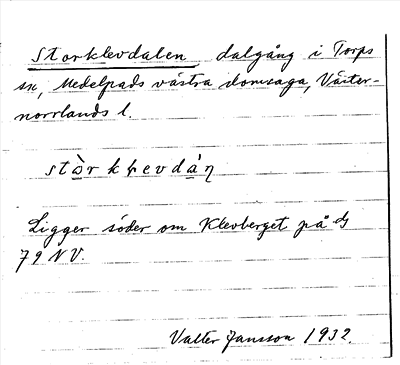 Storklevdalen, dalgång i Torps
sn, Medelpads västra domsaga, Väster-
norrlands l.
stòrkþevdàη
Ligger söder om Klevberget på dj
79 NV.
Valter Jansson 1932.